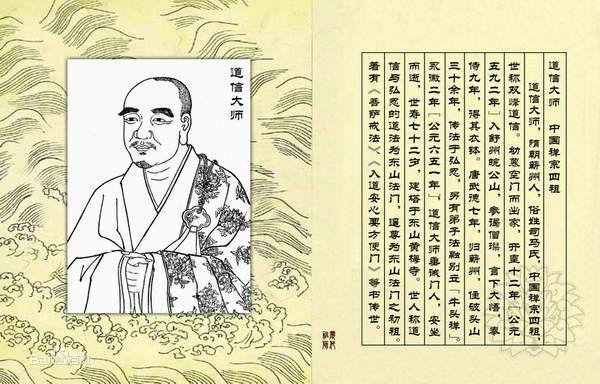 道信大师
道信大师　中国禅宗四祖
道信大师，隋朝蕲州人，俗姓司马氏，中国禅宗四祖，
世称双峰道信。幼慕空门而出家，开皇十二年［公元
五九二年］入舒州皖公山，参谒僧璨，言下大悟，奉
侍九年，得其衣钵。唐武德七年，归蕲州，住破头山
三十余年，传法于弘忍，另有弟子法融别立「牛头禅」。
永徽二年［公元六五一年］道信大师垂诫门人，安坐
而逝，世寿七十二岁，建塔于东山黄梅寺。世人称道
信与弘忍的道法为东山法门，遥尊为东山法门之初祖。
著有《菩萨戒法》《入道安心要方便门》等书传世。